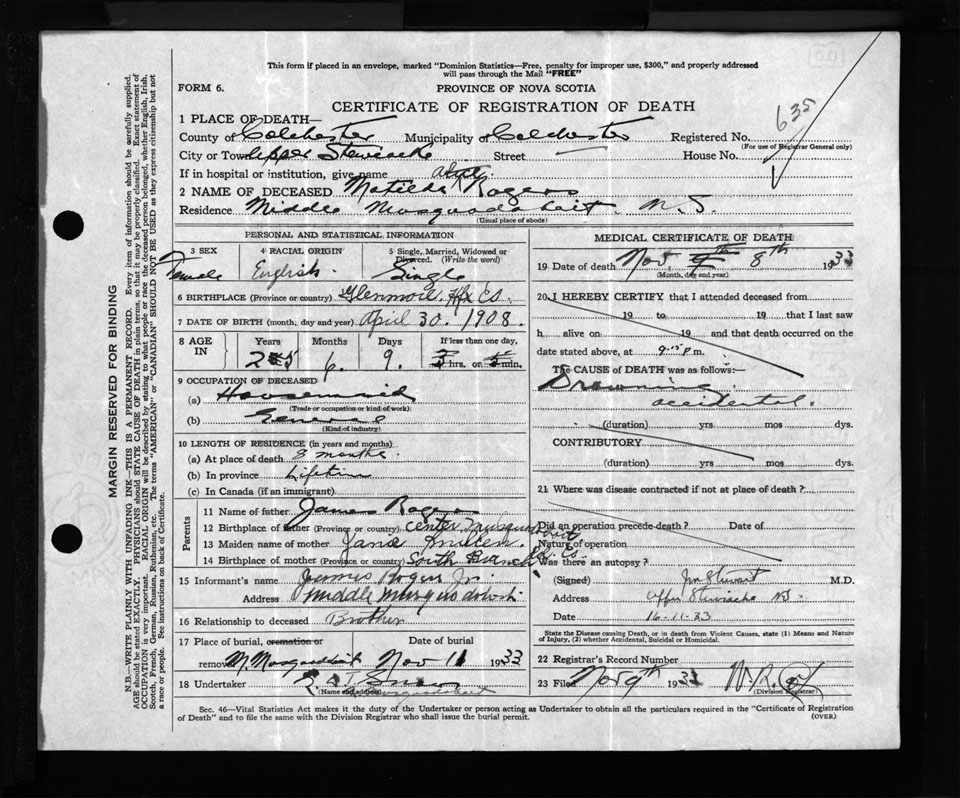 This form if placed in an envelope, marked "Dominion Statistics—Free, penalty for improper use, $300," and properly addressed
will pass through the Mail "FREE"
FORM 6.
PROVINCE OF NOVA SCOTIA
CERTIFICATE OF REGISTRATION OF DEATH
635
1 PLACE OF DEATH—
County of Colchester Municipality of Colchester Registered No.
(For use of Registrar General only)
City or Town Upper Stewiacke Street — House No.
If in hospital or institution, give name
2 NAME OF DECEASED Matilda Rogers
Residence Middle Musquodoboit. N.S.
(Usual place of abode)
PERSONAL AND STATISTICAL INFORMATION
3 SEX 4 RACIAL ORIGIN 5 Single, Married, Widowed or Divorced. (Write the word)
Female English. Single
6 BIRTHPLACE (Province or country) Glenmore. Hfx Co.
7 DATE OF BIRTH (month, day and year) April 30. 1908.
8 AGE IN Years Months Days If less than one day,
25 6. 9. hrs. or min.
9 OCCUPATION OF DECEASED
(a) Housemaid
(Trade or occupation or kind of work)
(b) General
(Kind of industry)
10 LENGTH OF RESIDENCE (in years and months)
(a) At place of death 8 months.
(b) In province Lifetime
(c) In Canada (if an immigrant)
Parents
11 Name of father James Rogers
12 Birthplace of father (Province or country) Center Musquodoboit
13 Maiden name of mother Janie
14 Birthplace of mother (Province or country) South Branch Co.
15 Informant's name James Rogers Jr.
Address Middle Musquodoboit
16 Relationship to deceased Brother
17 Place of burial, cremation or removal Date of burial
M. Musquodoboit Nov 11 1933
18 Undertaker
(Name and address)
Musquodoboit
MEDICAL CERTIFICATE OF DEATH
19 Date of death Nov 8th 1933
(Month, day and year)
20 I HEREBY CERTIFY that I attended deceased from
19 to 19 that I last saw
h alive on 19 and that death occurred on
date stated above, at 9.15 p.m.
The CAUSE of DEATH was as follows:—
Drowning
accidental.
(duration) yrs mos dys.
CONTRIBUTORY
(duration) yrs. mos. dys.
21 Where was disease contracted if not at place of death?
Did an operation precede death? Date of
Nature of operation
Was there an autopsy?
(Signed) Stewart M.D.
Address Upper Stewiacke NS.
Date 16-11-33
State the Disease causing Death, or in death from Violent Causes, state (1) Means and Nature
of Injury, (2) whether Accidental, Suicidal or Homicidal.
22 Registrar's Record Number
23 Filed Nov 9th 193
(Division Registrar)
Sec. 46—Vital Statistics Act makes it the duty of the Undertaker or person acting as Undertaker to obtain all the particulars required in the "Certificate of Registration
of Death" and to file the same with the Division Registrar who shall issue the burial permit.
(OVER)
MARGIN RESERVED FOR BINDING
N.B.—WRITE PLAINLY WITH UNFADING INK—THIS IS A PERMANENT RECORD. Every item of information should be carefully supplied.
AGE should be stated EXACTLY. PHYSICIANS should STATE CAUSE OF DEATH in plain terms, so that it may be properly classified. Exact statement of
OCCUPATION is very important. RACIAL ORIGIN will be described by stating to what people or race the deceased person belonged, whether English, Irish,
Scotch, French, German, Russian, Ruthenian, etc. The terms "AMERICAN" or "CANADIAN" SHOULD NOT BE USED as they express citizenship but not
a race or people. See instructions on back of Certificate.